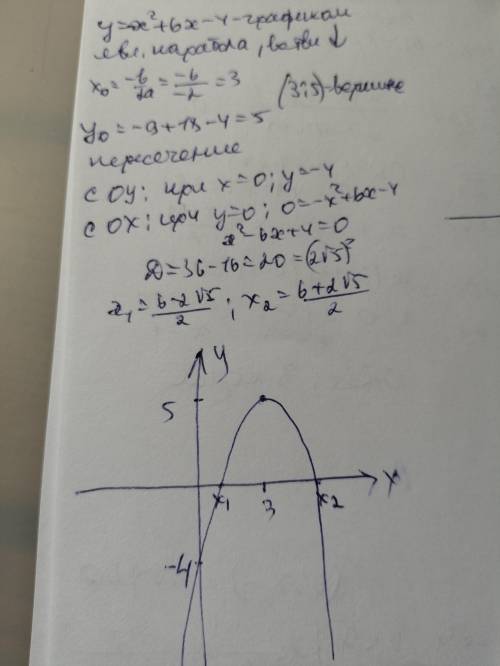 y=-x²+6x-4-графиком
явл. парабола, ветви ↓
x₀=-b/2a=-6/-2=3
(3;5)-вершина
y₀=-9+18-4=5
пересечение
с OY: при x=0; y=-4
с OX: при y=0; 0=-x²+6x-4
x²-6x+4=0
D=36-16=20=(2√5)²
x₁=6-2√5/2; x₂=6+2√5/2
y
5
x₁ 3 x₂ X
-4